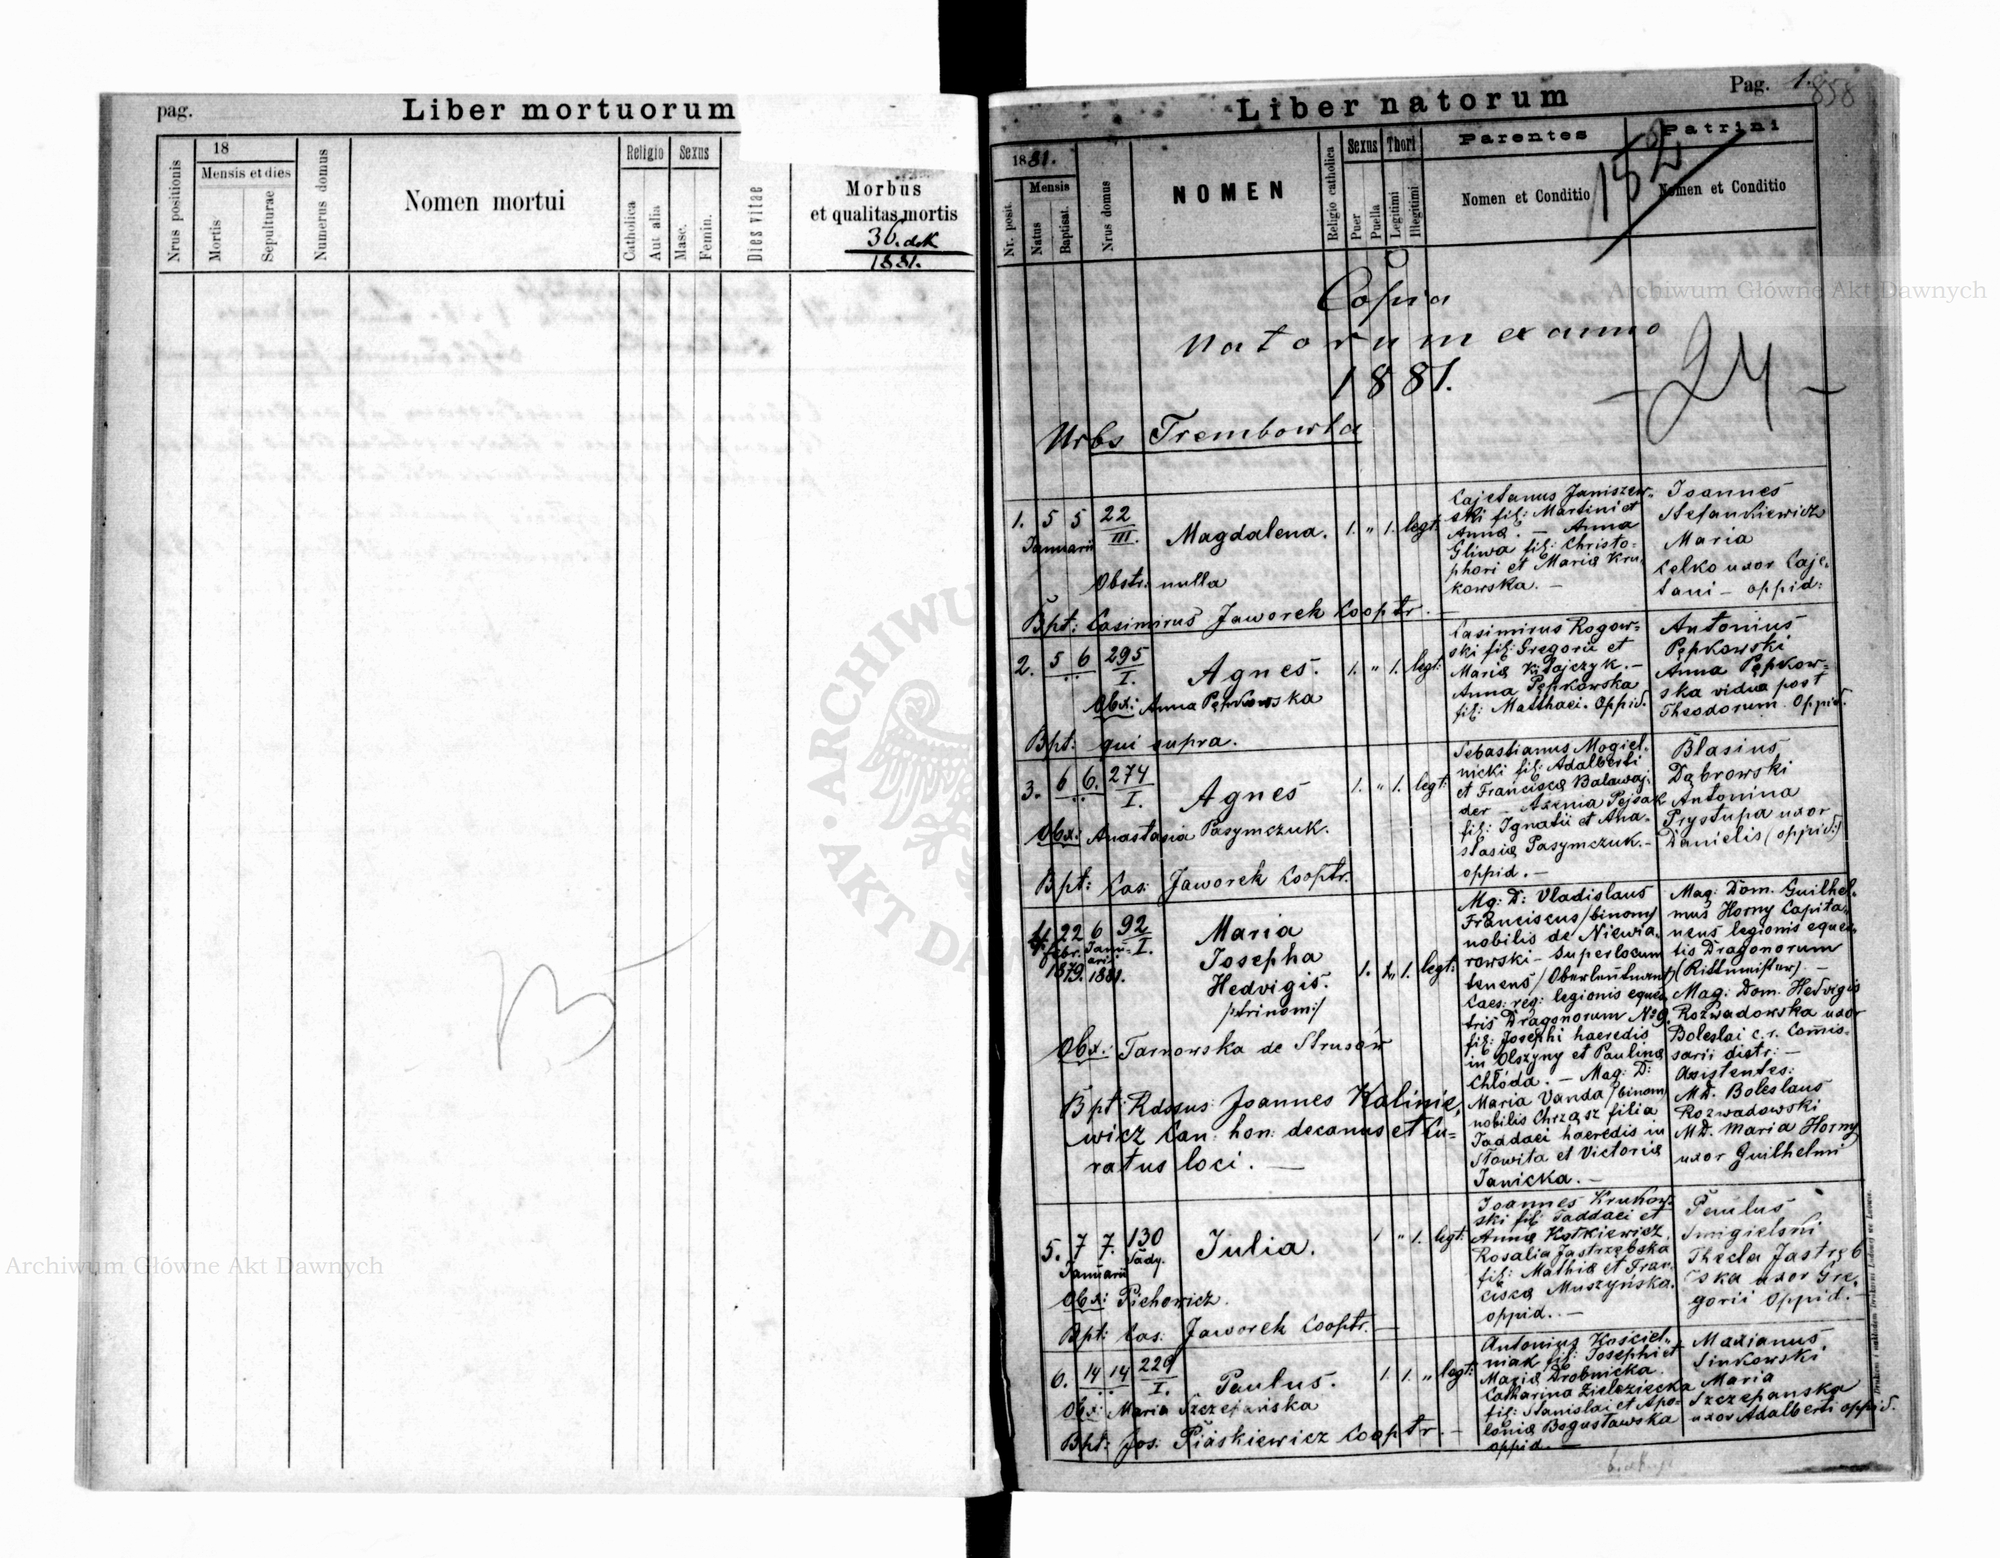 pag.
Liber mortuorum
Nrus positionis
18
Mensis et dies
Mortis
Sepulturae
Numerus domus
Nomen mortui
Religio
Catholica
Aut alia
Sexus
Masc.
Femin.
Dies vitae
Morbus
et qualitas mortis
36. dok
1881.
Pag. 1.
858
Liber natorum
Nr. posit.
1881.
Mensis
Natus
Baptisat.
Nrus domus
NOMEN
Religio catholica
Sexus
Puer
Puella
Thori
Legitimi
Illegitimi
Parentes
Nomen et Conditio
Patrini
Nomen et Conditio
152
Copia
Natorum ex anno
1881.
- 24 -
Urbs Trembowla
1. 5 5 22 III.
Januarii
Magdalena. 1. " 1. legt:
Obstr: nulla
Bpt: Casimirus Jaworek Cooptr. —
Cajetanus Janiszew-
ski fil: Martini et
Anna. — Anna
Gliwa fil: Christo-
phori et Maria Kru-
kowska. —
Joannes
Stefankiewicz
Maria
Celko uxor Caje-
tani — oppid:
2. 5 6 295 I.
Agnes. 1. " 1. legt:
Obx: Anna Pępkowska
Bpt: qui supra.
Casimirus Rogow-
ski fil: Gregorii et
Anna Pępkowska
fil: Matthaei. Oppid.
Antonius
Pępkowski
Anna Pępkow-
ska vidua post
Theodorum. Oppid.
3. 6 6. 274 I.
Agnes 1. " 1. legt:
Obx: Anastasia Pasymczuk.
Bpt: Cas: Jaworek Cooptr.
Sebastianus Mogiel-
nicki fil: Adalberti
et Francisca Balawaj-
der — Axenia Pejsak
fil: Ignatii et Ana-
stasia Pasymczuk. —
oppid. —
Blasius
Dąbrowski
Antonina
Prystupa uxor
Danielis (oppid:)
4. 22 6 92 I.
Febr. Janu-
arii
1879. 1881.
Maria
Josepha
Hedvigis.
/:trinom:/
1. 1. legt:
Obx: Tarnowska de Strusów
Bpt: Rdssus: Joannes Kalinie-
wicz Can: hon: decanus et Cu-
ratus loci. —
Mg: D: Vladislaus
Franciscus /binom/
nobilis de Niewia-
rowski — Superlocum
tenens /Oberleutnant/
Caes: reg: legionis eques-
tris Dragonorum No 9.
fil: Josephi haeredis
in Olszyny et Paulina
Chłóda. — Mag: D:
Maria Vanda /binom/
nobilis Chrząsz filia
Taddaei haeredis in
Słowita et Victoria
Janicka. —
Mag: Dom. Guilhel-
mus Horny Capita-
neus legionis eques-
tis Dragonorum
(Rittmeister). —
Mag: Dom. Hedvigis
Rozwadowska uxor
Boleslai c. r. Comis-
sarii distr: —
Asistentes:
MD. Boleslaus
Rozwadowski
MD. Maria Horny
uxor Guilhelmi
5. 7 7. 130
Januarii Sady.
Julia. 1 " 1. legt:
Obx: Pichowicz.
Bpt: Cas: Jaworek Cooptr. —
Joannes Krukow-
ski fil: Taddaei et
Anna Kątkiewicz.
Rosalia Jastrzębska
fil: Mathia et Fran-
cisca Muszyńska.
oppid. —
Paulus
Smigielski
Thecla Jastręb
ska uxor Gre-
gorii Oppid. —
6. 14 14 229 I.
Paulus. 1. 1. " legt:
Obx: Maria Szczepańska
Bpt: Jos: Piaskiewicz Cooptr. —
Antonius Kościel-
niak fil: Josephi et
Maria Drobnicka.
Catharina Zieleziecka
fil: Stanislai et Apo-
lonia Bogusławska
oppid. —
Marianus
Sinkowski
Maria
Szczepanska
uxor Adalberti oppid.
Archiwum Główne Akt Dawnych
Archiwum Główne Akt Dawnych